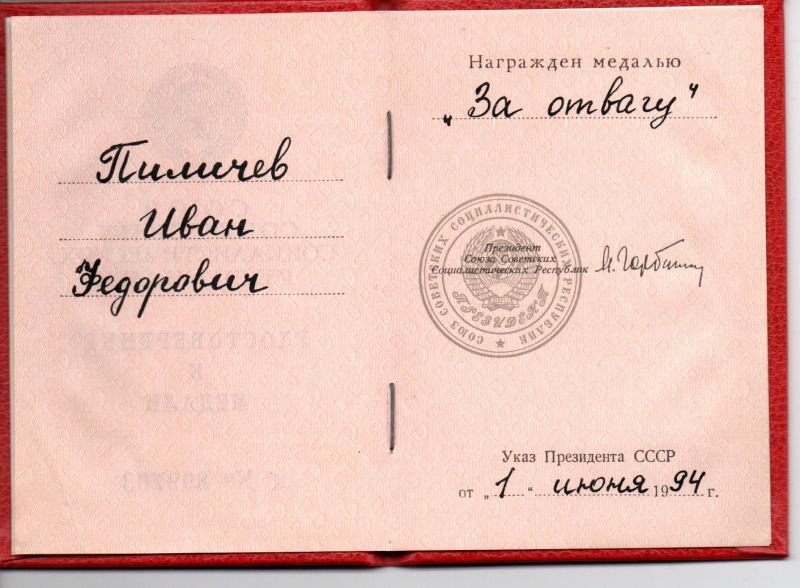 Пиличев
Иван
Федорович
Награжден медалью
„За отвагу“
СОЮЗ СОВЕТСКИХ СОЦИАЛИСТИЧЕСКИХ РЕСПУБЛИК
Президент
Союза Советских
Социалистических Республик
ПРЕЗИДЕНТ
Указ Президента СССР
от „1“ июня 1994 г.